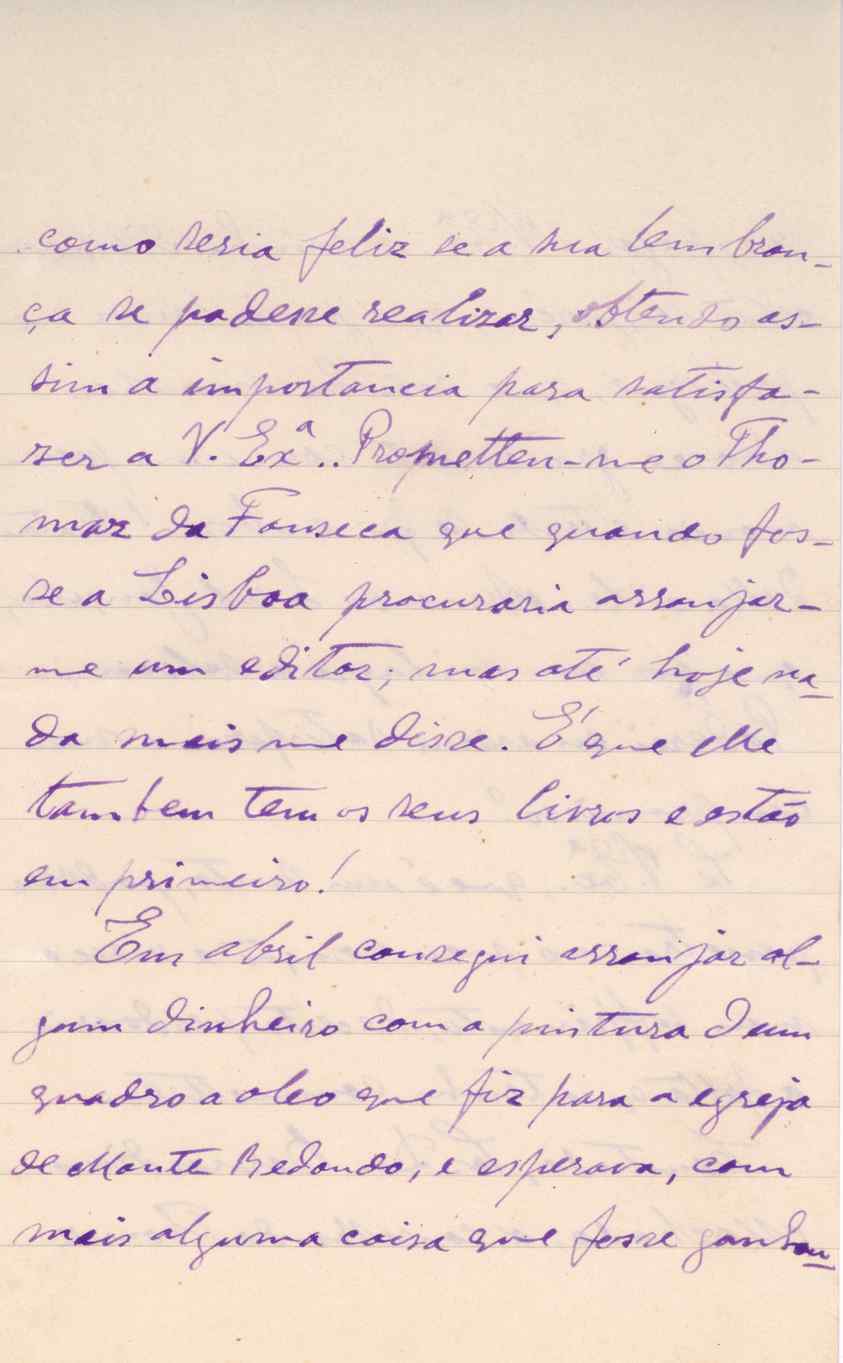 como seria feliz se a sua lembran-
ça se podesse realizar, obtendo as-
sim a importancia para satisfa-
zer a V. Exª.. Prometteu-me o Tho-
maz da Fonseca que quando fos-
se a Lisboa procuraria arranjar-
me um editor; mas até hoje na-
da mais me disse. É que elle
tambem tem os seus livros e estão
em primeiro!
Em abril consegui arranjar al-
gum dinheiro com a pintura dum
quadro a oleo que fiz para a egreja
de Monte Redondo, e esperava, com
mais alguma coisa que fosse ganhan-